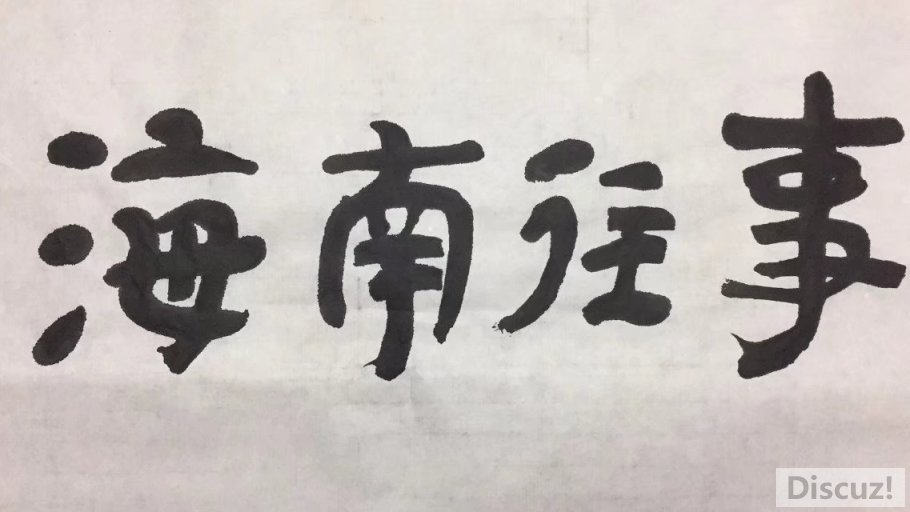 海南往事
Discuz!